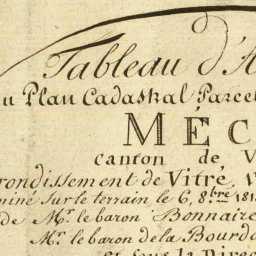 Tableau d'A
u Plan Cadastral Parcel
MÉC
canton de V
rondissement de Vitré, V
miné sur le terrain le 6, 8bre 181
de Mr. le baron Bonnaire
Mr. le baron de la Bourdo
et sous la Direc